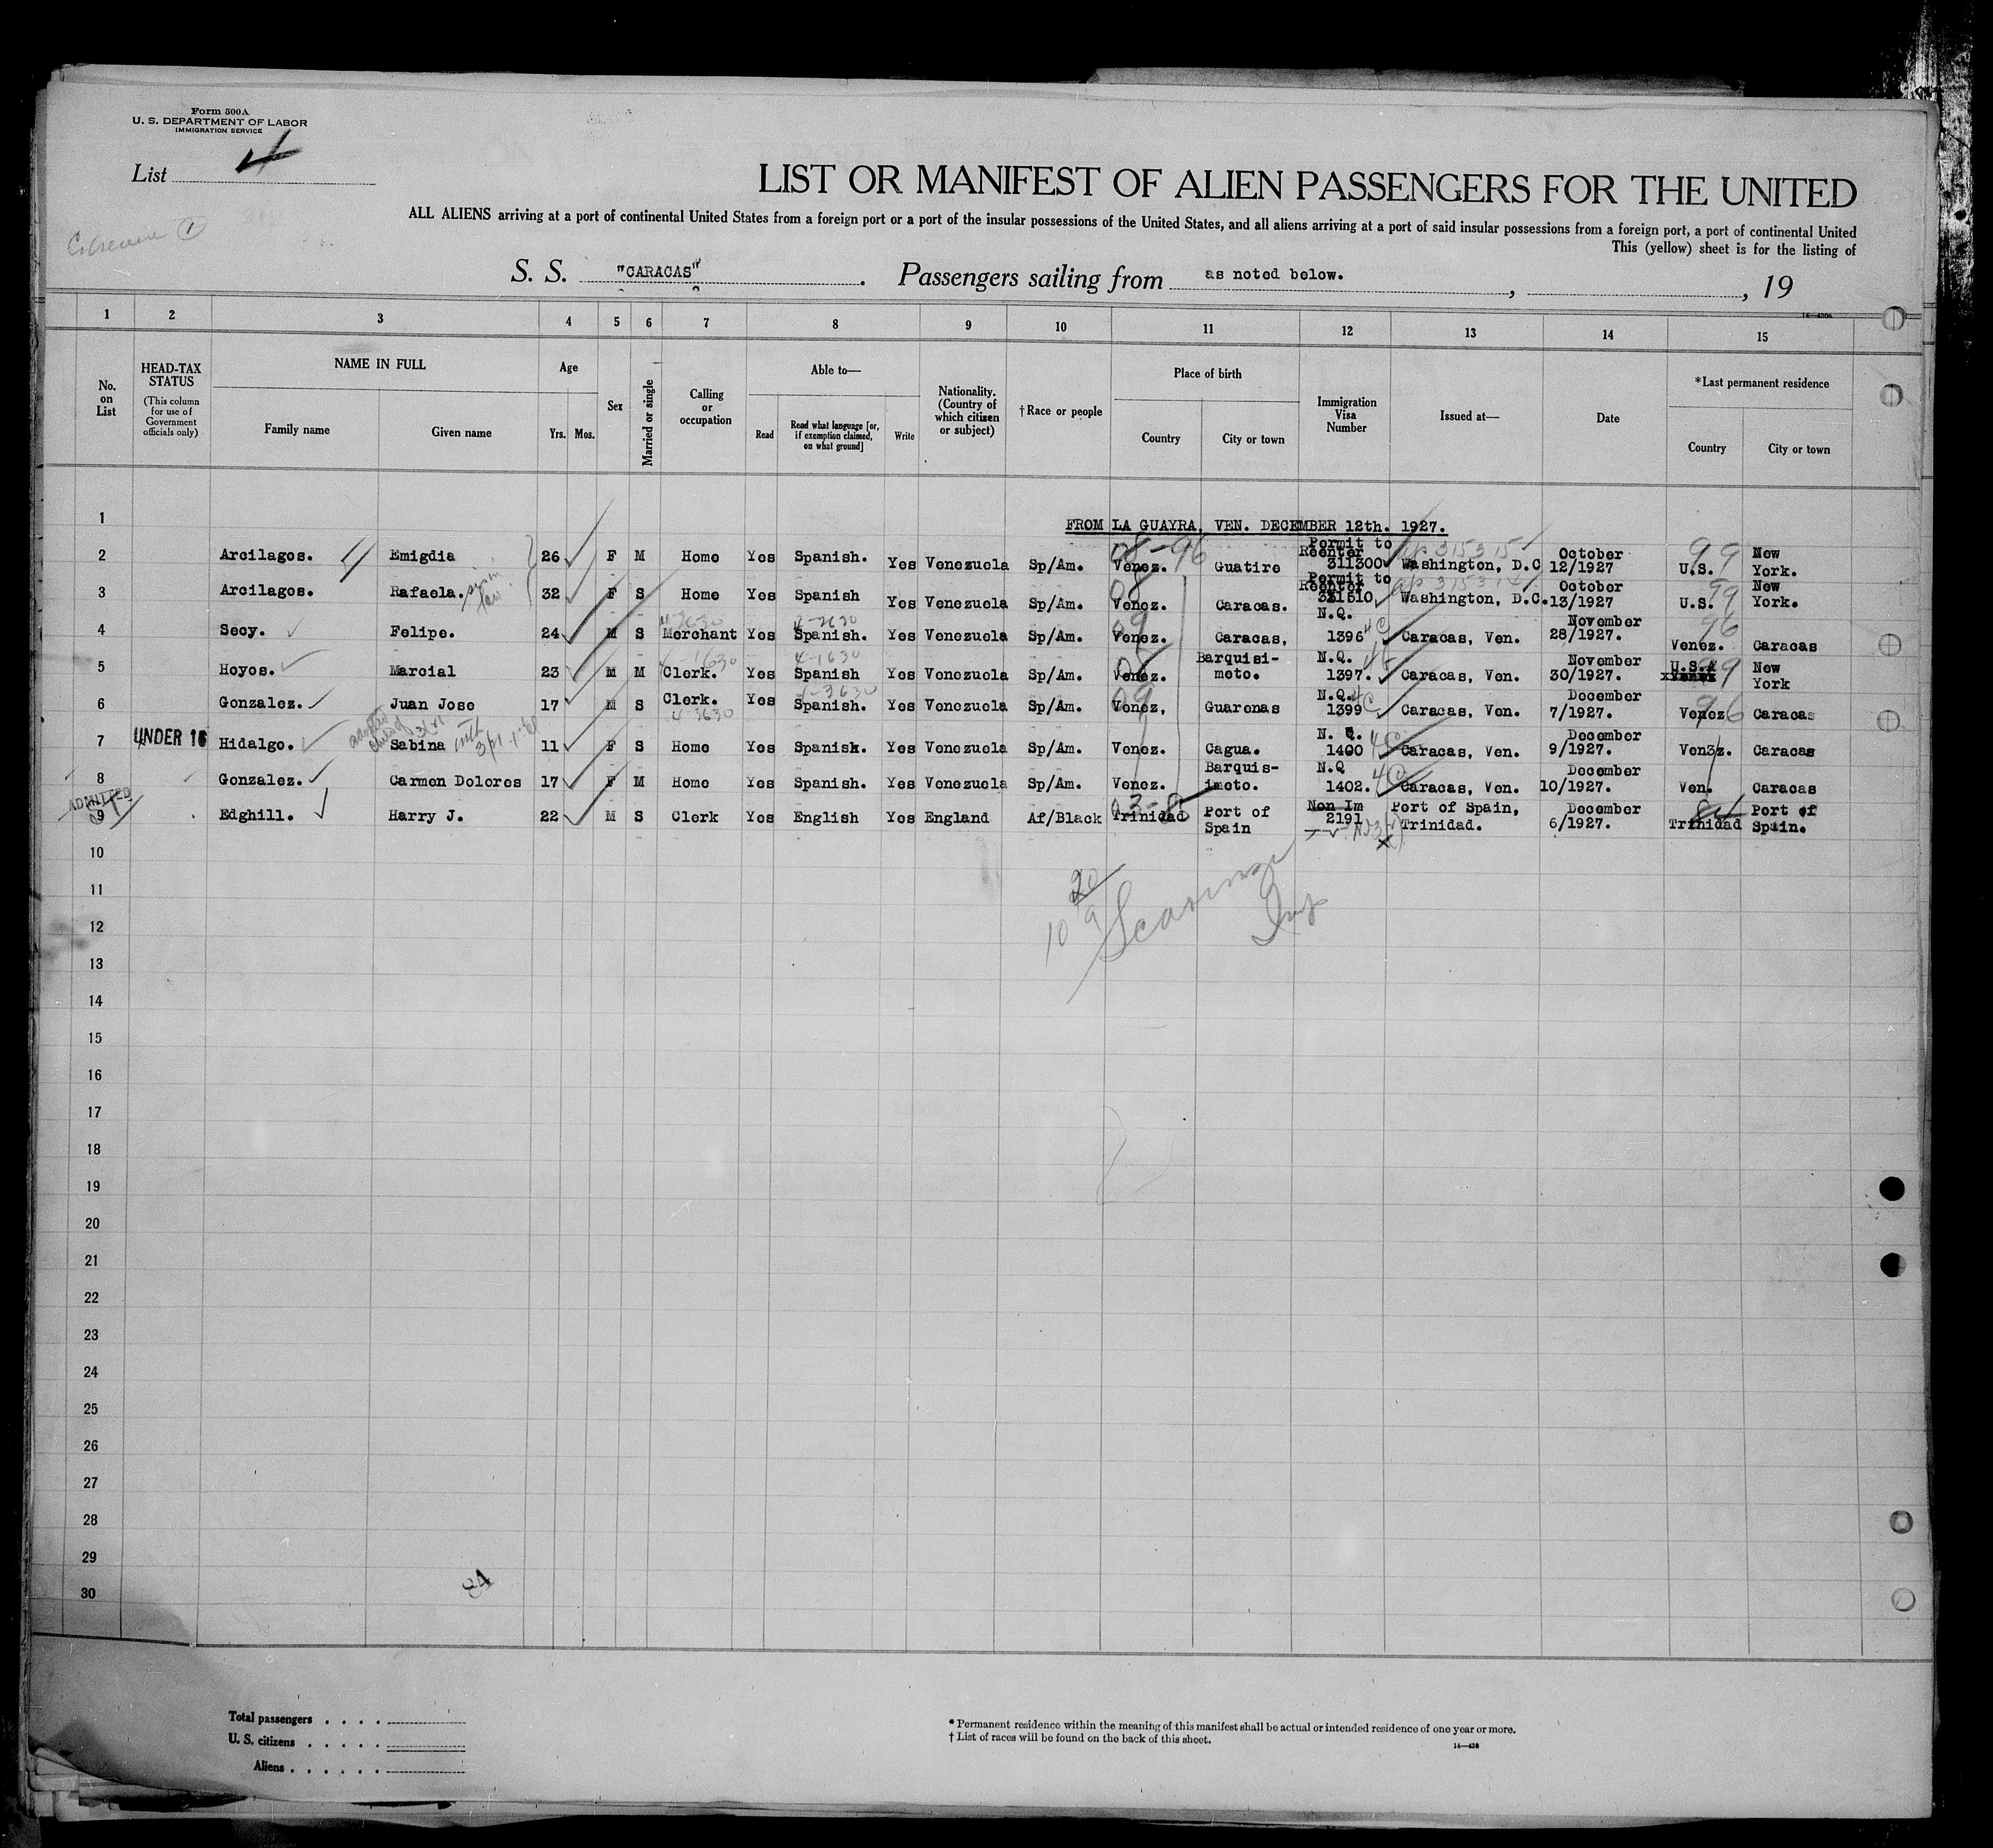 Form 500A
U. S. DEPARTMENT OF LABOR
IMMIGRATION SERVICE
List 4
LIST OR MANIFEST OF ALIEN PASSENGERS FOR THE UNITED
ALL ALIENS arriving at a port of continental United States from a foreign port or a port of the insular possessions of the United States, and all aliens arriving at a port of said insular possessions from a foreign port, a port of continental United
This (yellow) sheet is for the listing of
S. S. "CARACAS" . Passengers sailing from as noted below. , , 19
1 2 3 4 5 6 7 8 9 10 11 12 13 14 15
No. on List
HEAD-TAX STATUS
(This column for use of Government officials only)
NAME IN FULL
Family name Given name
Age
Yrs. Mos.
Sex
Married or single
Calling or occupation
Able to—
Read
Read what language [or, if exemption claimed, on what ground]
Write
Nationality. (Country of which citizen or subject)
†Race or people
Place of birth
Country City or town
Immigration Visa Number
Issued at—
Date
*Last permanent residence
Country City or town
1 FROM LA GUAYRA, VEN. DECEMBER 12th. 1927.
2 Arcilagos. Emigdia 26 F M Home Yes Spanish. Yes Venezuela Sp/Am. Venez. Guatire Permit to Reenter 311300 Washington, D.C October 12/1927 U.S. New York.
3 Arcilagos. Rafaela. 32 F S Home Yes Spanish Yes Venezuela Sp/Am. Venez. Caracas. Permit to Reenter Washington, D.C. October 13/1927 U.S. New York.
4 Secy. Felipe. 24 M S Merchant Yes Spanish. Yes Venezuela Sp/Am. Venez. Caracas, N.Q. 1396 Caracas, Ven. November 28/1927. Venez. Caracas
5 Hoyos. Marcial 23 M M Clerk. Yes Spanish Yes Venezuela Sp/Am. Venez. Barquisi-meto. N.Q. 1397. Caracas, Ven. November 30/1927. U.S.A New York
6 Gonzalez. Juan Jose 17 M S Clerk. Yes Spanish. Yes Venezuela Sp/Am. Venez, Guarenas N.Q. 1399 Caracas, Ven. December 7/1927. Venez Caracas
7 UNDER 16 Hidalgo. Sabina 11 F S Home Yes Spanisk. Yes Venezuela Sp/Am. Venez. Cagua. N. Q. 1400 Caracas, Ven. December 9/1927. Ven3z. Caracas
8 Gonzalez. Carmen Dolores 17 F M Home Yes Spanish. Yes Venezuela Sp/Am. Venez. Barquis-imeto. N.Q 1402. Caracas, Ven. December 10/1927. Ven. Caracas
ADMITTED
9 Edghill. Harry J. 22 M S Clerk Yes English Yes England Af/Black Trinidad Port of Spain Non Im 2191 Port of Spain, Trinidad. December 6/1927. Trinidad Port of Spain.
10
11
12
13
14
15
16
17
18
19
20
21
22
23
24
25
26
27
28
29
30
Total passengers . . . .
U. S. citizens . . . . .
Aliens . . . . . .
* Permanent residence within the meaning of this manifest shall be actual or intended residence of one year or more.
† List of races will be found on the back of this sheet.
14—430